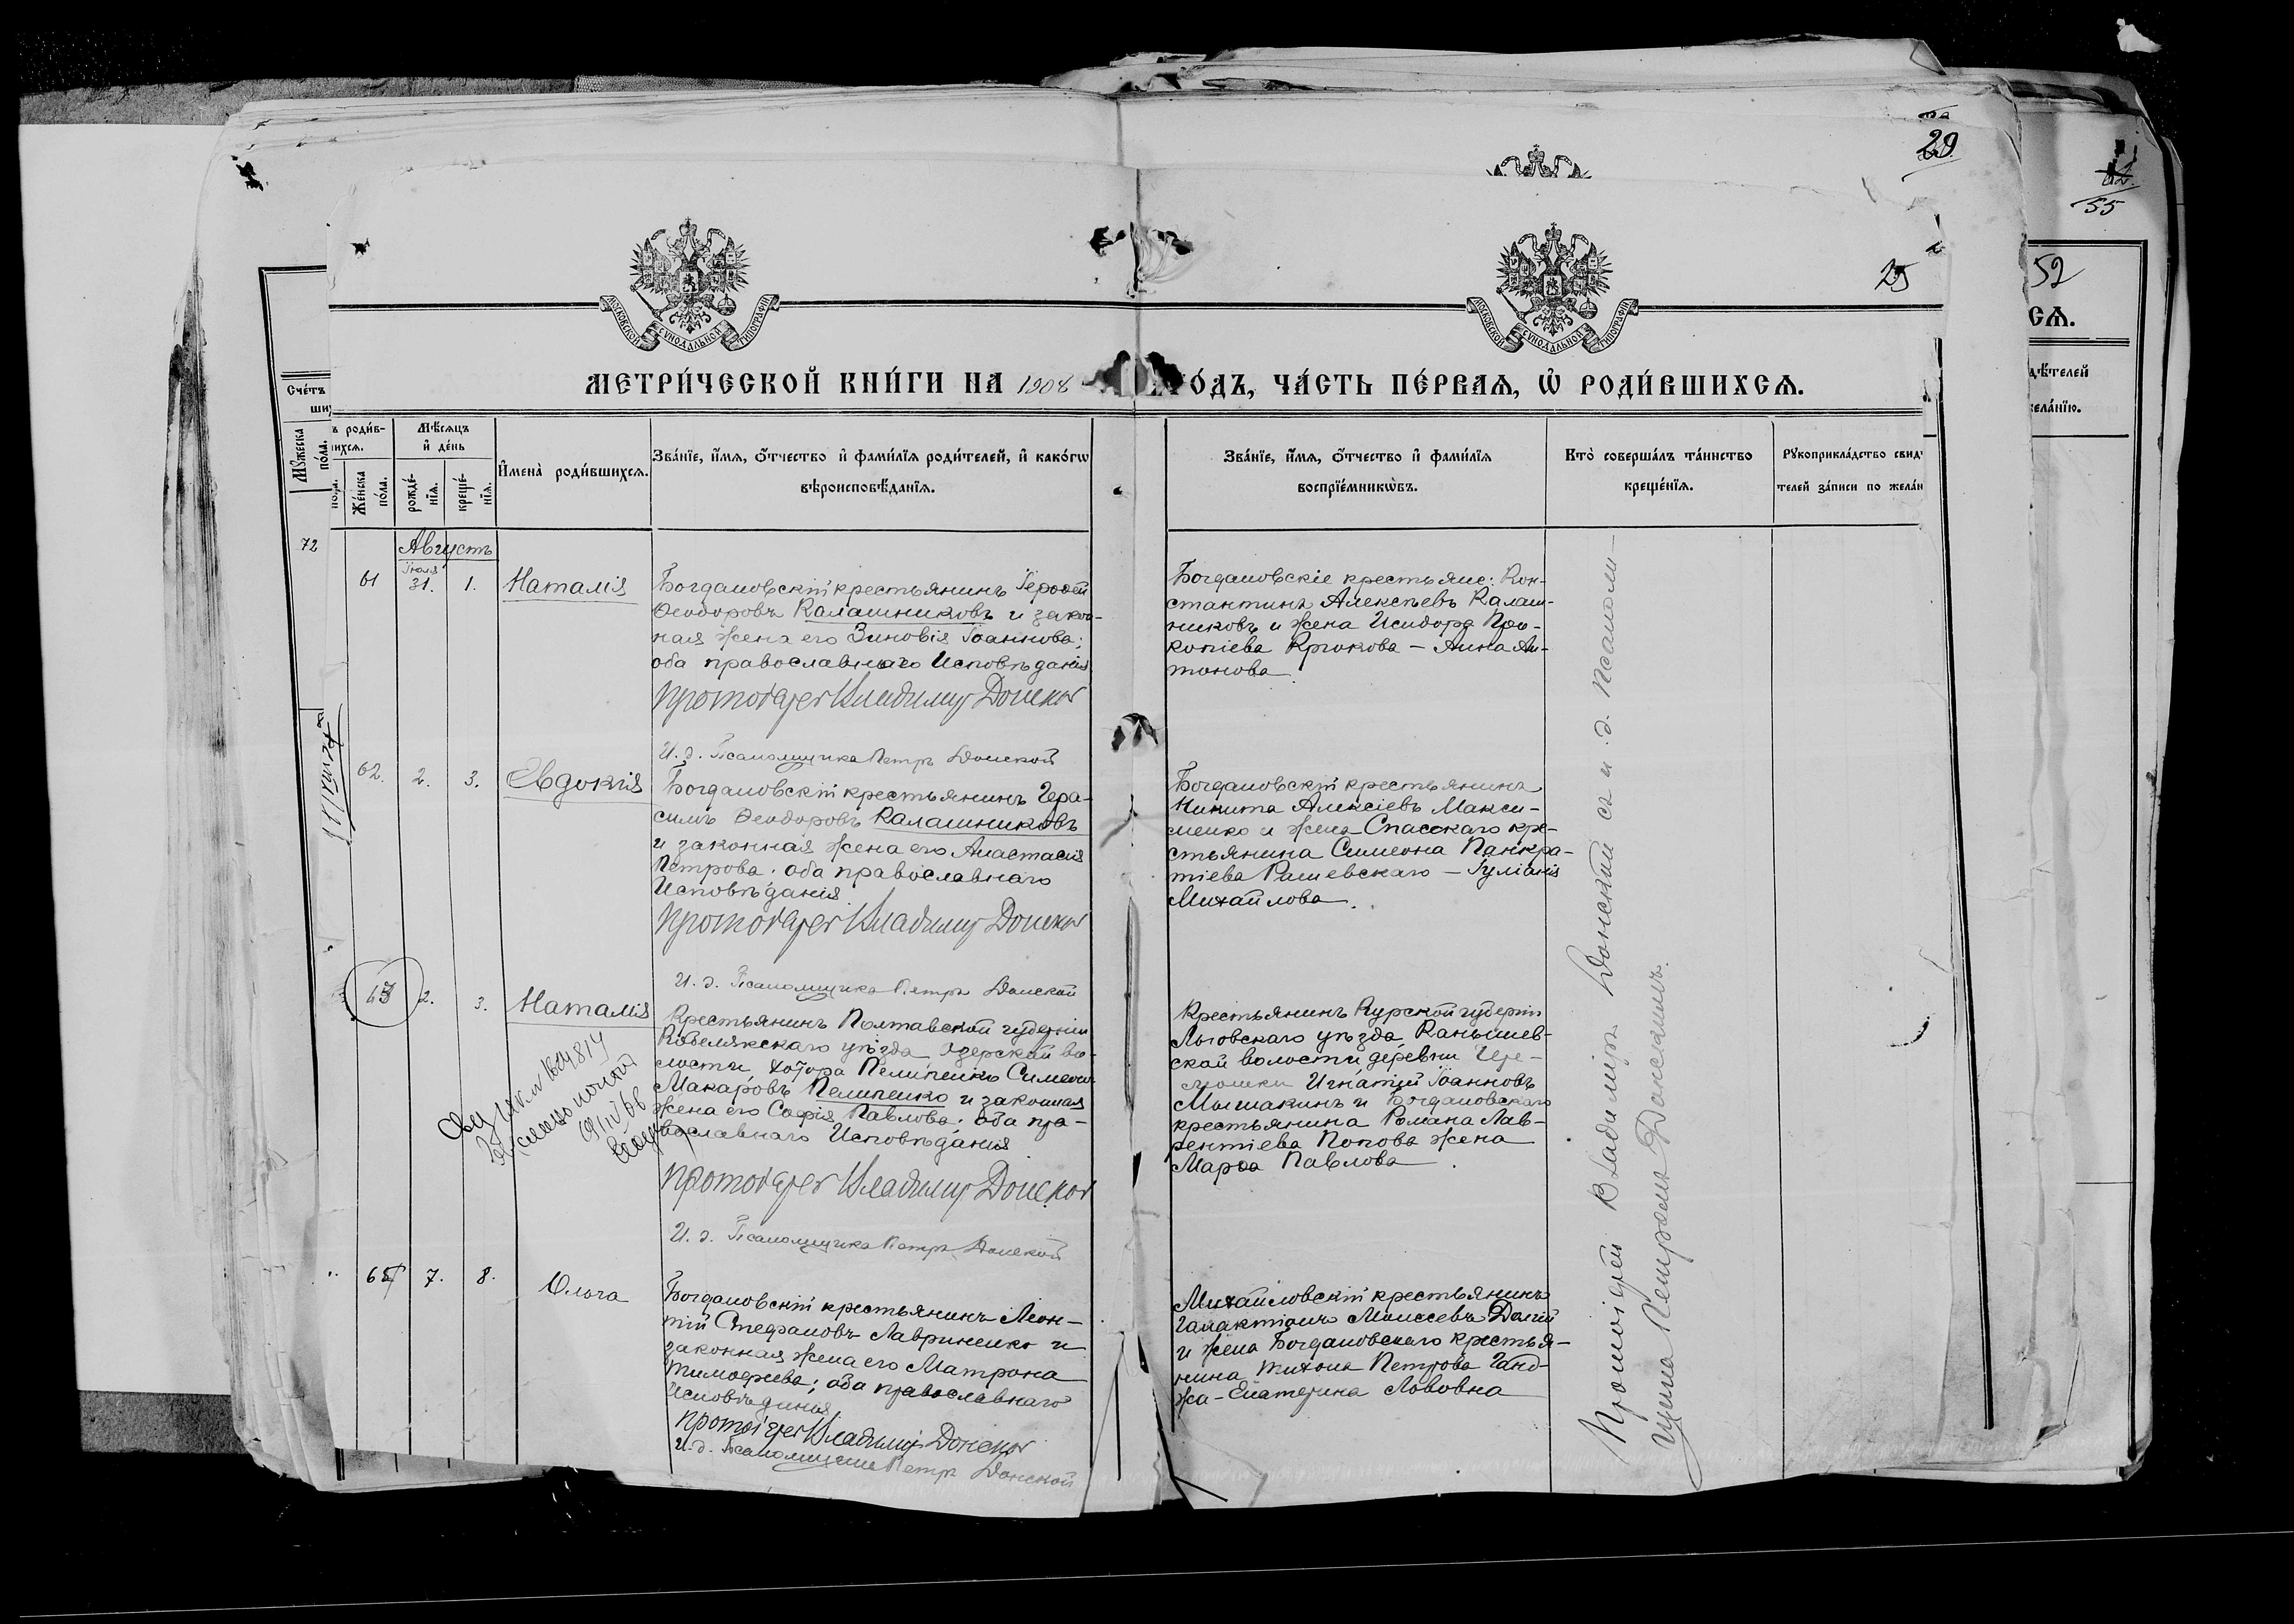 29
62
55
25
52
МОСКОВСКОЙ СѴНОДАЛЬНОЙ ТИПОГРАФІИ
МОСКОВСКОЙ СѴНОДАЛЬНОЙ ТИПОГРАФІИ
МЕТРИ́ЧЕСКОЙ КНИ́ГИ НА 1908 ГО́ДЪ, ЧА́СТЬ ПЕ́РВАЯ, Ѡ РОДИ́ВШИХСЯ.
СЯ.
Сче́тъ
ши
Мꙋжеска по́ла.
ъ роди́в-
шихся.
Же́нска по́ла.
Мѣ́сяцъ
и҆ де́нь
рожде́-
нїя.
креще́-
нїя.
И҆мена̀ роди́вшихся.
Зва́нїе, и҆́мя, ѻ҆́тчество и҆ фами́лїя роди́телей, и҆ како́гѡ
вѣроисповѣ́данїя.
Зва́нїе, и҆́мя, ѻ҆́тчество и҆ фами́лїя
воспрїе́мникѡвъ.
Кто̀ соверша́лъ та́инство
креще́нїя.
Рꙋкоприкла́дство свид
телей за́писи по жела́н
дѣ́телей
жела́нїю.
72
Августъ
61
Іюля
31.
1.
Наталія
Богдановскій крестьянинъ Іероѳей
Ѳеодоровъ Калашниковъ и закон-
ная жена его Зиновія Іоаннова;
оба православнаго Исповѣданія
Протоіерей Владимир Донской
И. д. Псаломщика Петръ Донской
Богдановскіе крестьяне: Кон-
стантинъ Алексѣевъ Калаш-
никовъ и жена Исидора Про-
копіева Крюкова – Анна Ан-
тонова
62.
2.
3.
Евдокія
Богдановскій крестьянинъ Гера-
симъ Ѳеодоровъ Калашниковъ
и законная жена его Анастасія
Петрова; оба православнаго
Исповѣданія
Протоіерей Владимир Донской
И. д. Псаломщика Петръ Донской
Богдановскій крестьянинъ
Никита Алексіевъ Макси-
менко и жена Спасскаго кре-
стьянина Симеона Панкра-
тіева Рашевскаго – Іуліанія
Михайлова.
63
2.
3.
Наталія
Крестьянинъ Полтавской губерніи
Кобелякскаго уѣзда Озерской во-
лости, хутора Пелипенко Симеонъ
Макаровъ Пелипенко и законная
жена его Софія Павлова; оба пра-
вославнаго Исповѣданія
Протоіерей Владимир Донской
И. д. Псаломщика Петръ Донской
Крестьянинъ Курской губерніи
Льговскаго уѣзда, Канышев-
ской волости, деревни Чере-
мошки Игнатій Іоанновъ
Мышакинъ и Богдановскаго
крестьянина Романа Лав-
рентіева Попова жена
Марѳа Павлова.
64
7.
8.
Ольга
Богдановскій крестьянинъ Леон-
тій Стефановъ Лавриненко и
законная жена его Матрона
Тимофеева; оба православнаго
Исповѣданія
Протоіерей Владимир Донской
И. д. Псаломщика Петръ Донской
Михайловскій крестьянинъ
Галактіонъ Моисеевъ Долгій
и жена Богдановскаго крестья-
нина Тихона Петрова Ганд-
жа – Екатерина Львовна
Протоіерей Владиміръ Донской съ и. д. Псалом-
щика Петромъ Донскимъ.